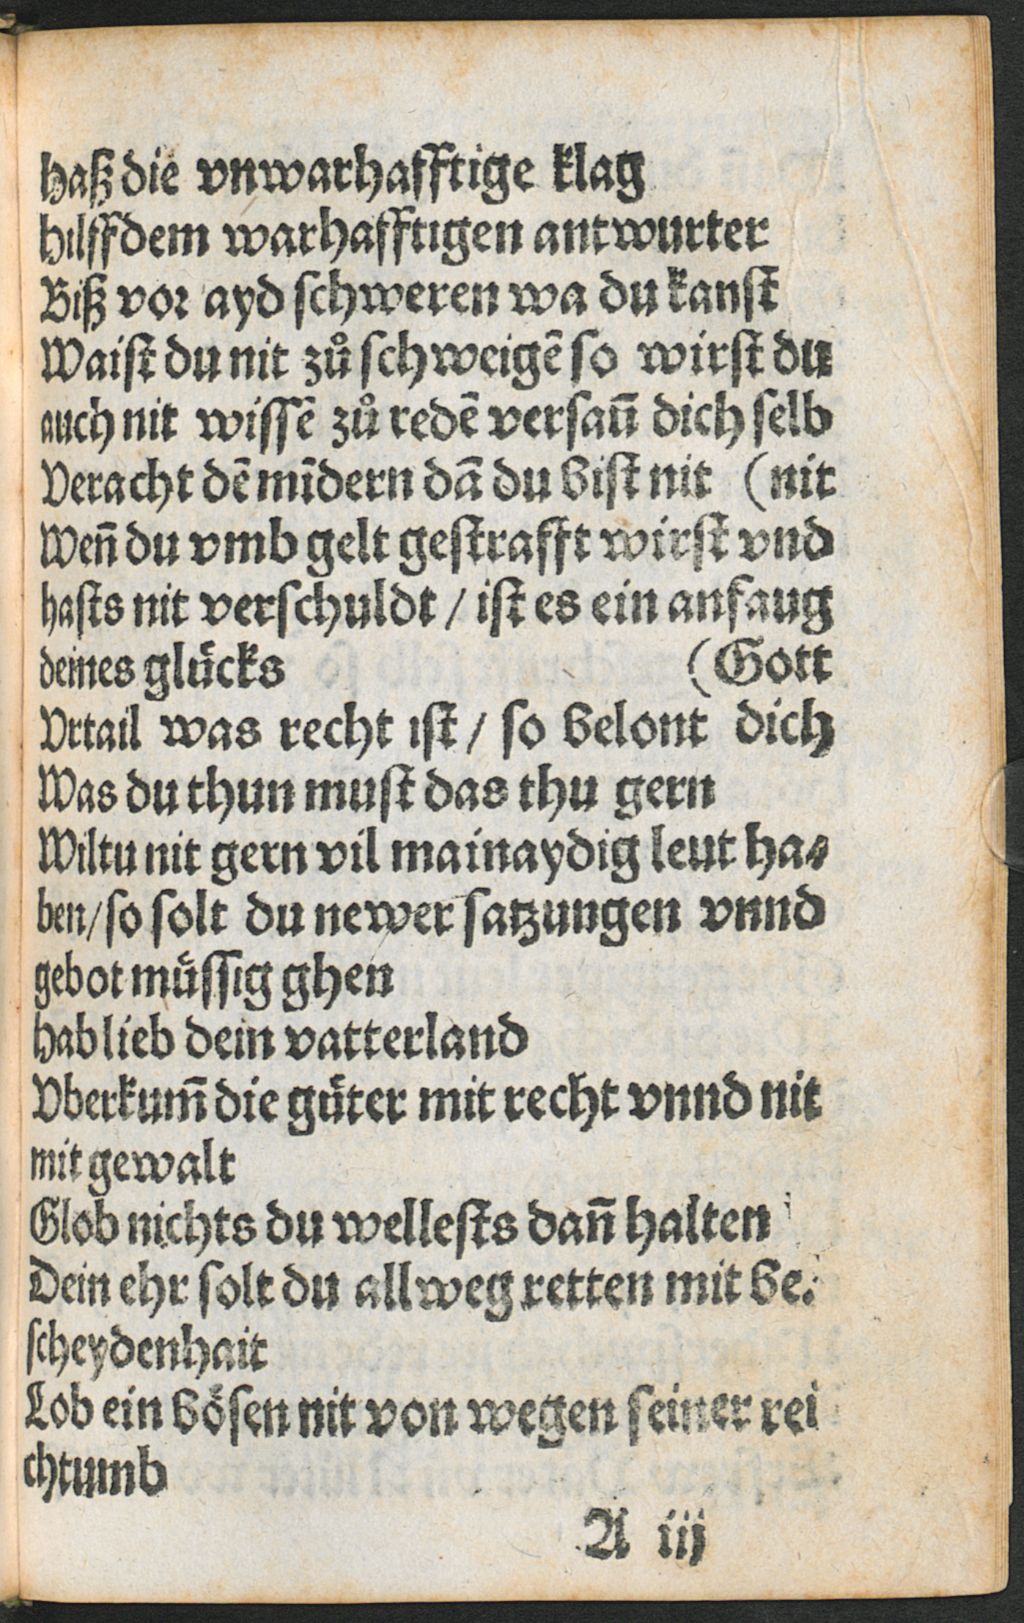 Haß die vnwarhafftige klag
Hilff dem warhafftigen antwurter
Biß vor ayd schweren wa du kanst
Waist du nit zů schweigē so wirst du
auch nit wissē zů redē versan̄ dich selb
Veracht dē mīdern dā du bist nit (nit
Wen̄ du vmb gelt gestrafft wirst vnd
hasts nit verschuldt / ist es ein anfaug
deines glücks (Gott
Vrtail was recht ist / so belont dich
Was du thun must das thu gern
Wiltu nit gern vil mainaydig leut ha⸗
ben / so solt du newer satzungen vnnd
gebot müssig ghen
Hab lieb dein vatterland
Vberkum̄ die güter mit recht vnnd nit
mit gewalt
Glob nichts du wellests dan̄ halten
Dein ehr solt du allweg retten mit be⸗
scheydenhait
Lob ein bösen nit von wegen seiner rei
chtumb
A iij